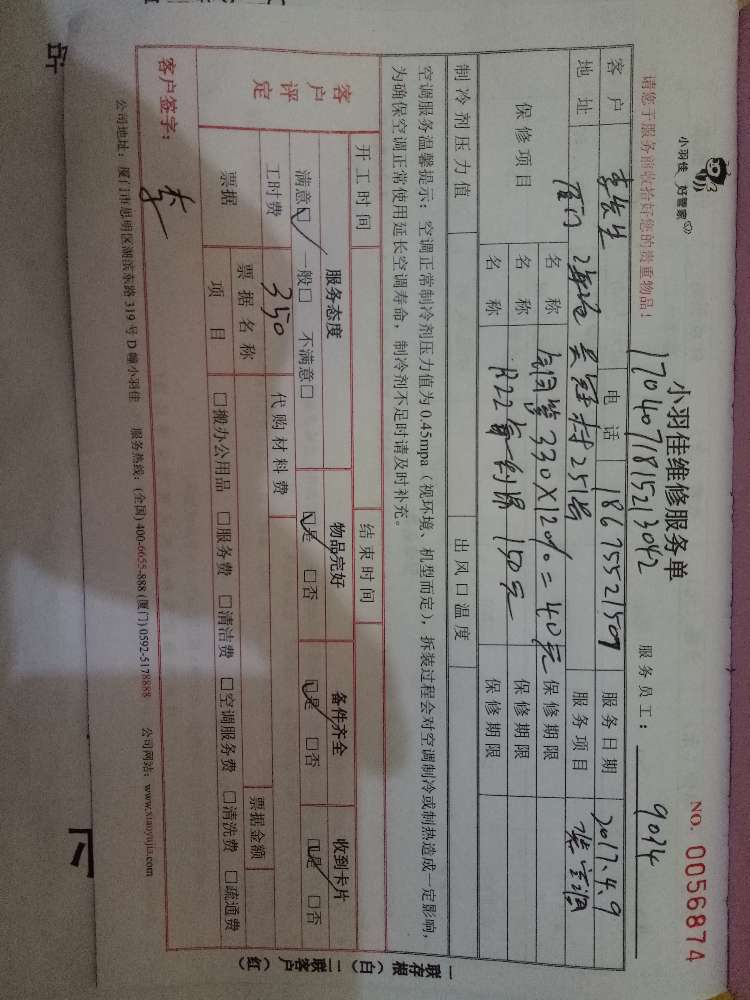 小羽佳 好管家
请您于服务前收拾好您的贵重物品！
小羽佳维修服务单
NO. 0056874
1704071815213042
服务员工： 9024
客户 李先生 电话 18675521509 服务日期 2017.4.9
地址 厦门 251号 服务项目
保修项目 名称 铜管 330×12%=40元 保修期限
名称 R22 150元 保修期限
名称 保修期限
制冷剂压力值 出风口温度
空调服务温馨提示：空调正常制冷剂压力值为0.45mpa（视环境、机型而定），拆装过程会对空调制冷或制热造成一定影响，
为确保空调正常使用延长空调寿命，制冷剂不足时请及时补充。
开工时间 结束时间
客户评定 服务态度 物品完好 备件齐全 收到卡片
满意□ 一般□ 不满意□ □是 □否 □是 □否 □是 □否
工时费 350 代购材料费
票据 票据名称 票据金额
项目 □搬办公用品 □服务费 □清洁费 □空调服务费 □清洗费 □疏通费
客户签字： 李
公司地址：厦门市思明区湖滨东路319号D幢小羽佳 服务热线：(全国)400-6655-888 (厦门)0592-5178888 公司网站：www.xiaoyujia.com
一联存根（白）二联客户（红）